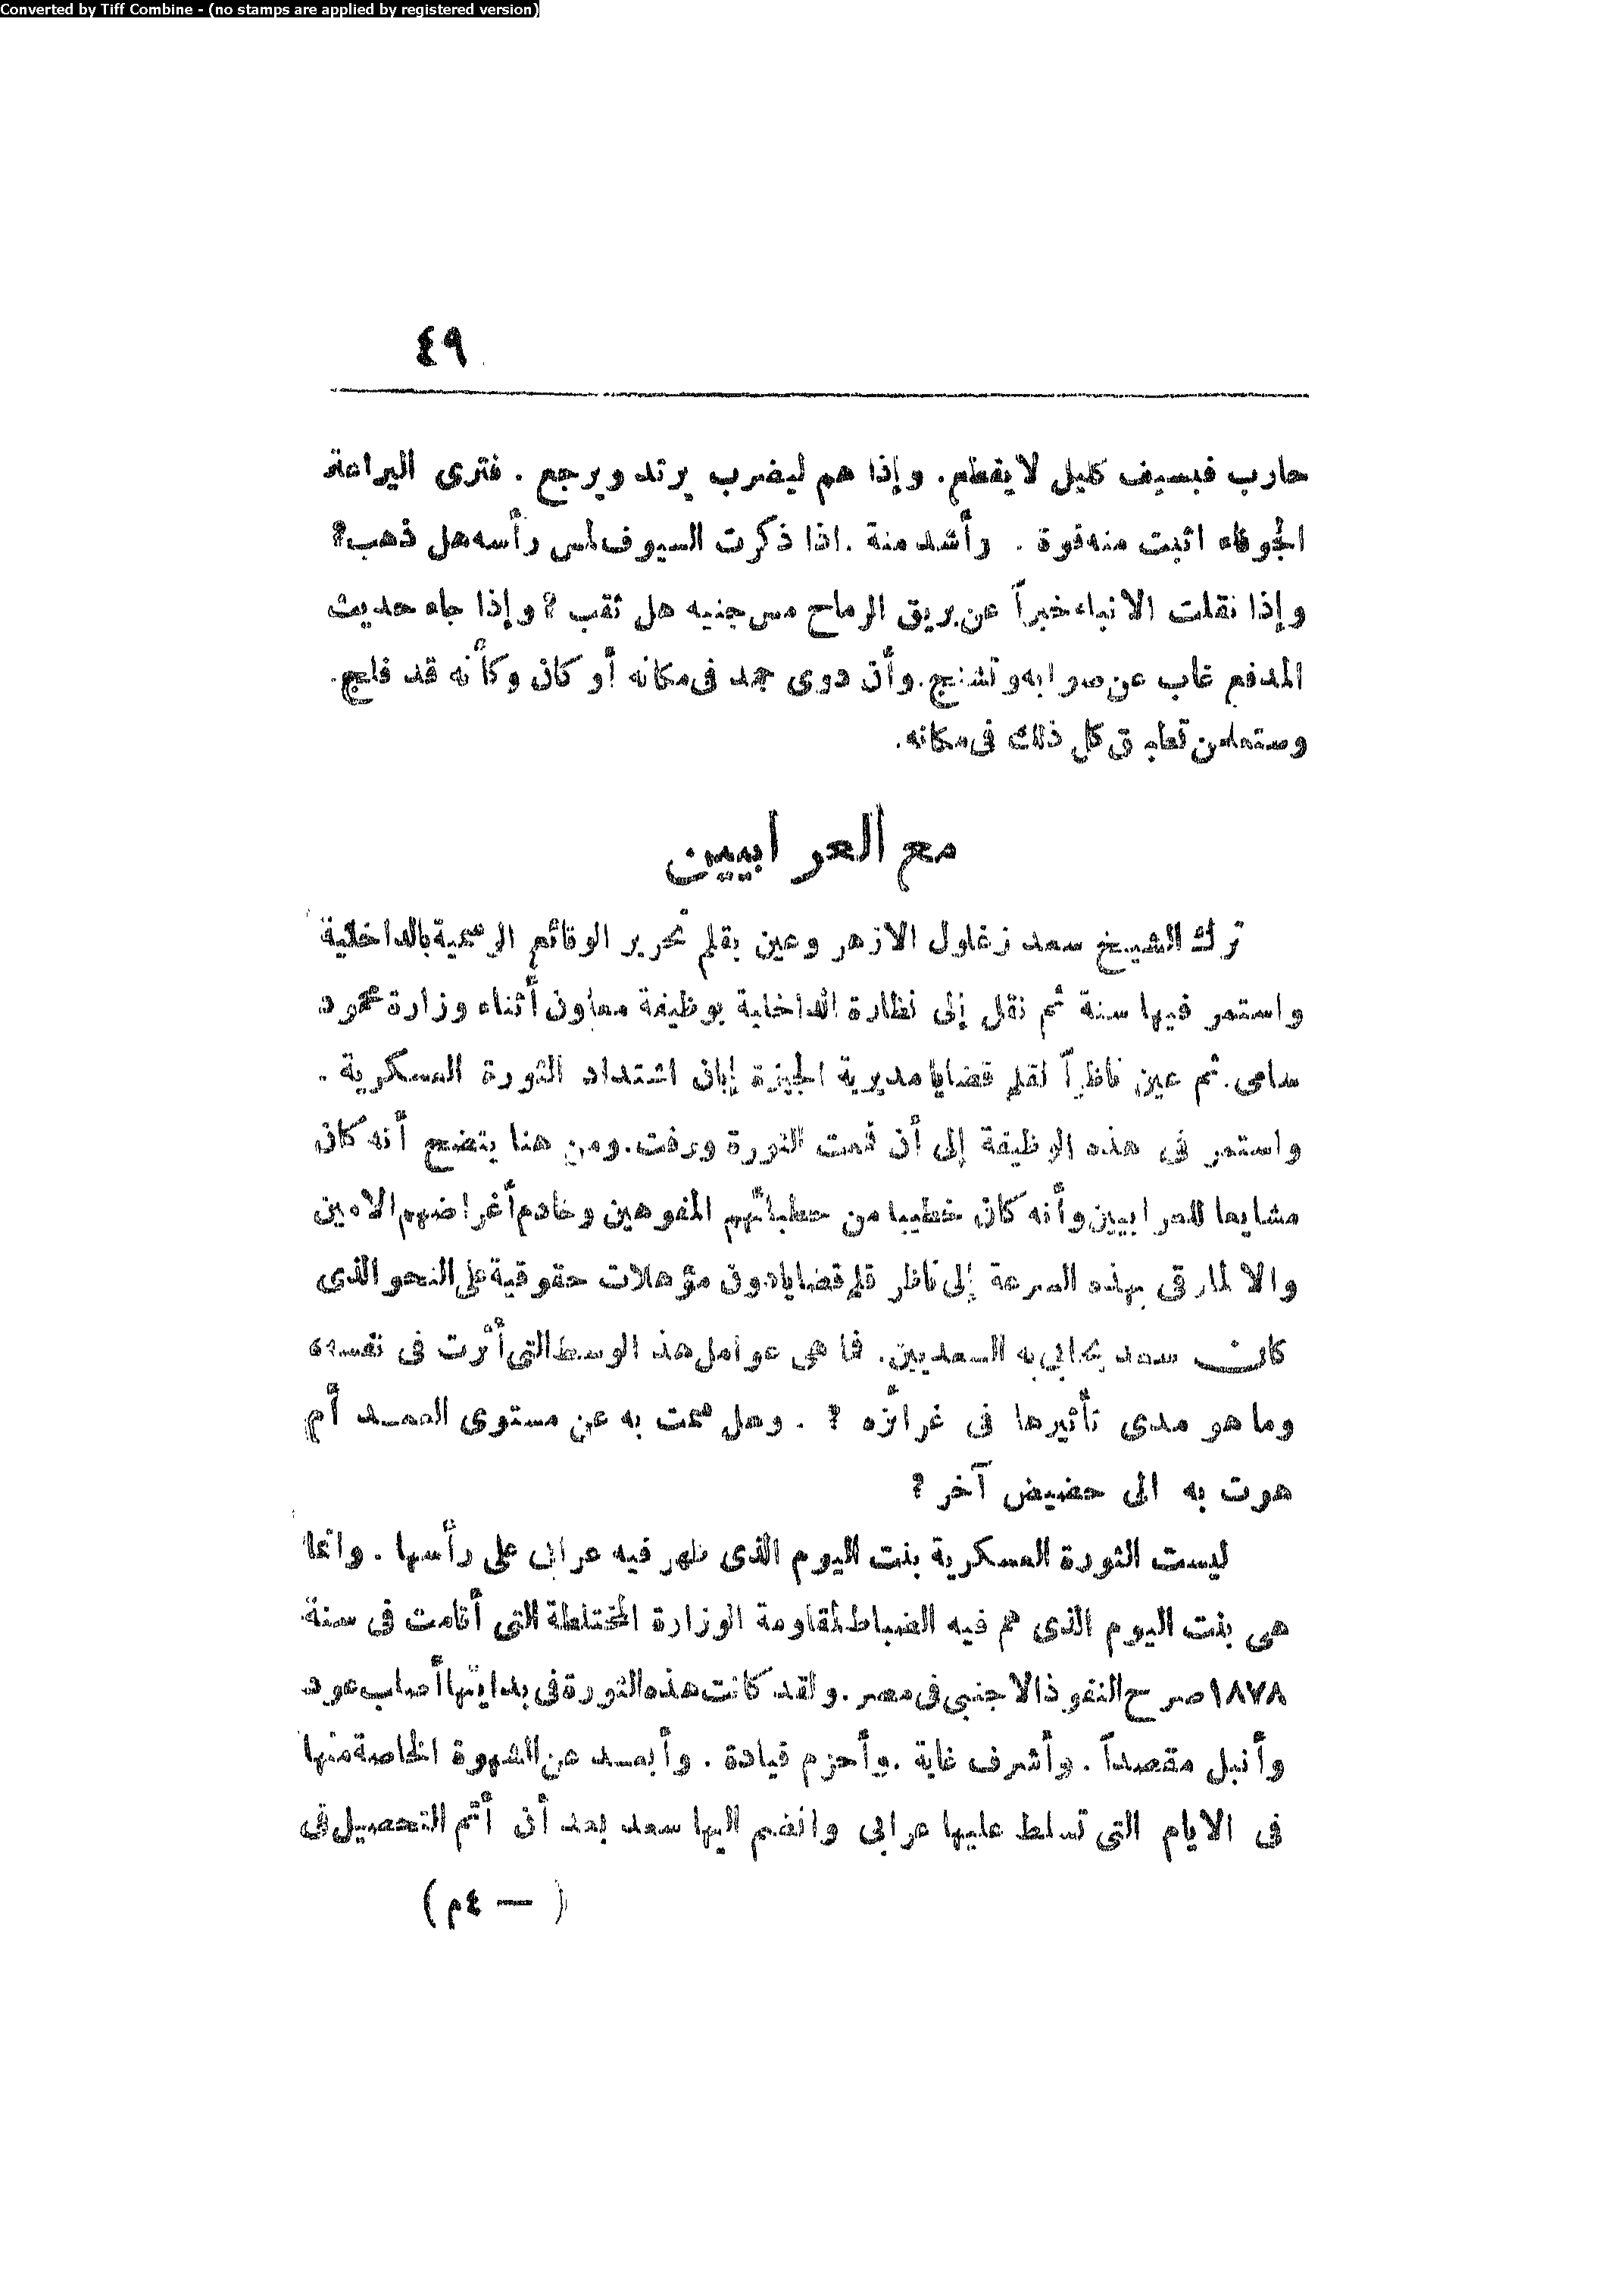 Converted by Tiff Combine - (no stamps are applied by registered version)
٤٩
حارب فبسيف كليل لا يقطع. وإذا هم ليضرب يرتد ويرجع . فترى اليراعة
الجوفاء اثبت منه قوة . وأشد منة . اذا ذكرت السيوف لمس رأسه هل ذهب ؟
وإذا نقلت الانباء خبراً عن بريق الرماح مس جنبه هل ثقب ؟ وإذا جاء حديث
المدفع غاب عن صوابه وتشنج. وأن دوى جمد فى مكانه أو كان وكأنه قد فلج.
وستعلمن تعليق كل ذلك فى مكانه.
مع العرابيين
ترك الشيخ سعد زغلول الازهر وعين بقلم تحرير الوقائع الرسمية بالداخلية
واستمر فيها سنة ثم نقل إلى نظارة الداخلية بوظيفة معاون أثناء وزارة محمود
سامى. ثم عين ناظراً لقلم قضايا مديرية الجيزة إبان اشتداد الثورة العسكرية .
واستمر فى هذه الوظيفة إلى أن قمعت الثورة ورفت. ومن هنا يتضح أنه كان
مشايعا للعرابيين وأنه كان خطيبا من خطبائهم المفوهين وخادم أغراضهم الامين
والا لما رقى بهذه السرعة إلى ناظر قلم قضايا دون مؤهلات حقوقية على النحو الذى
كان سعد يحابى به السعديين. فما هى عوامل هذ الوسط التى أثرت فى نفسه
وما هو مدى تأثيرها فى غرائزه ؟ . وهل سمت به عن مستوى العمد أم
هوت به الى حضيض آخر ؟
ليست الثورة العسكرية بنت اليوم الذى ظهر فيه عرابى على رأسها . وانما
هى بنت اليوم الذى هم فيه الضباط لمقاومة الوزارة المختلطة التى أقامت فى سنة
١٨٧٨ صرح النفوذ الاجنبى فى مصر. ولقد كانت هذه الثورة فى بدايتها أصلب عود
وأنبل مقصداً . وأشرف غاية . وأحزم قيادة . وأبعد عن الشهوة الخاصة منها
فى الايام التى تسلط عليها عرابى وانضم اليها سعد بعد أن أتم التحصيل فى
( — ٤ م )